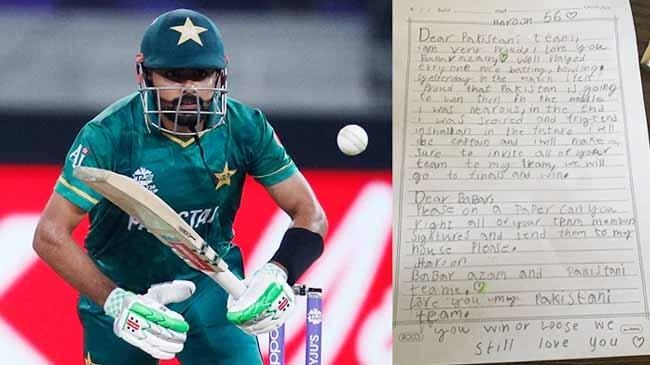 PAKISTAN
BYJU'S
HAROON 56♡
Dear Pakistani team,
i am very proud, i love you
Babar azam, well Played
evry one nice batting, bowling.
yesterday in the match i felt
Proud that Pakistan is going
to win then in the middle
i was nearous, in the end
i was scored and frightend
inshallah in the future i will
be captain and i will make
sure to invite all of your
team to my team, we will
go to finals and win.
Dear Babar,
Please on a paper can you
right all of your team member
signtures and send them to my
house Please.
Haroon
Babar azam and Pakistani
teame.
Love you my Pakistani
team.
if you win or loose we
still love you ♡